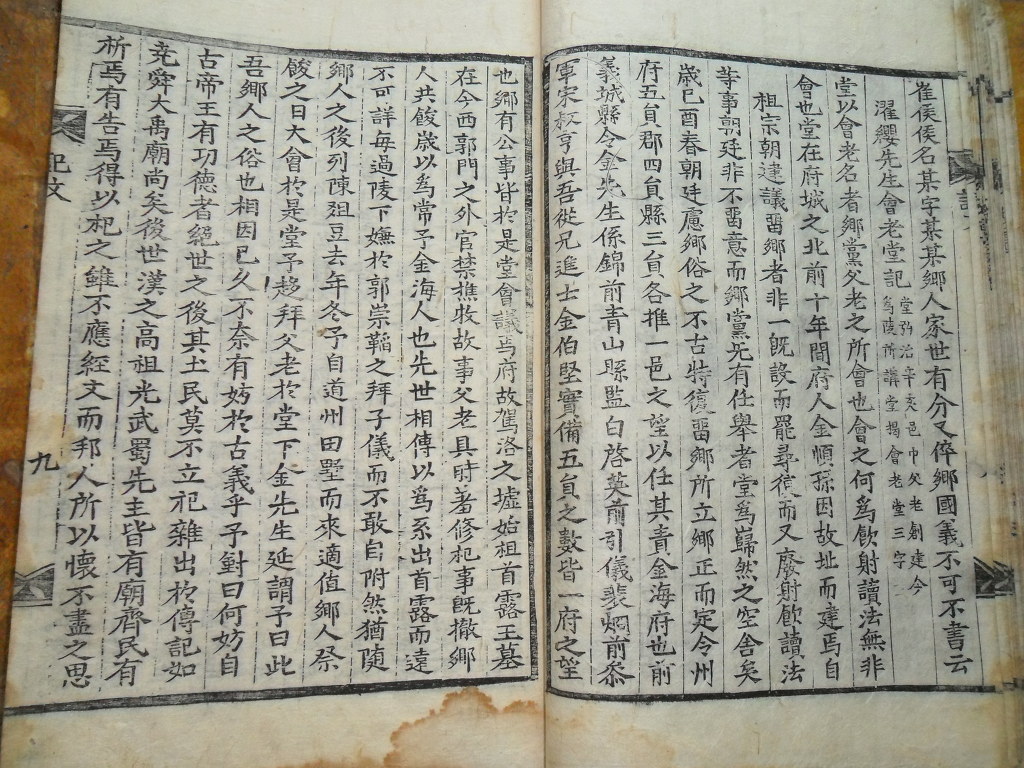 崔侯侯名某字某某鄉人家世有分又倅鄉國義不可不書云
濯纓先生會老堂記 堂弥治辛亥邑中父老創建今
爲陵所講堂揭會老堂三字
堂以會老名者鄉黨父老之所會也會之何爲飮射讀法無非
會也堂在府城之北前十年間府人金順孫因故址而建焉自
祖宗朝建議畱鄉者非一旣設而罷尋復而又廢射飮讀法
等事朝廷非不畱意而鄉黨旡有任舉者堂爲巋然之空舍矣
歲已酉春朝廷慮鄉俗之不古特復畱鄉所立鄉正而定令州
府五員郡四員縣三員各推一邑之望以任其責金海府也前
義城縣令金先生係錦前青山縣監白啓英前引儀裴炯前叅
軍宋叔亨與吾從兄進士金伯堅實備五員之數皆一府之望
也鄉有公事皆於是堂會議焉府故駕洛之墟始祖首露王墓
在今西郭門之外官禁樵牧故事父老具時羞修祀事旣撤鄉
人共餕歲以爲常予金海人也先世相傳以爲系出首露而遠
不可詳每過陵下嫌於郭崇韜之拜子儀而不敢自附然猶随
鄉人之後列陳爼豆去年冬予自道州田墅而來適值鄉人祭
餕之日大會於是堂予趍拜父老於堂下金先生延謂予曰此
吾鄉人之俗也相因已久不奈有妨於古義乎予對曰何妨自
古帝王有功德者絕世之後其土民莫不立祀雜出於傳記如
堯舜大禹廟尚矣後世漢之高祖光武蜀先主皆有廟齊民有
祈焉有告焉得以祀之雖不應經文而邦人所以懷不盡之思
記文
九